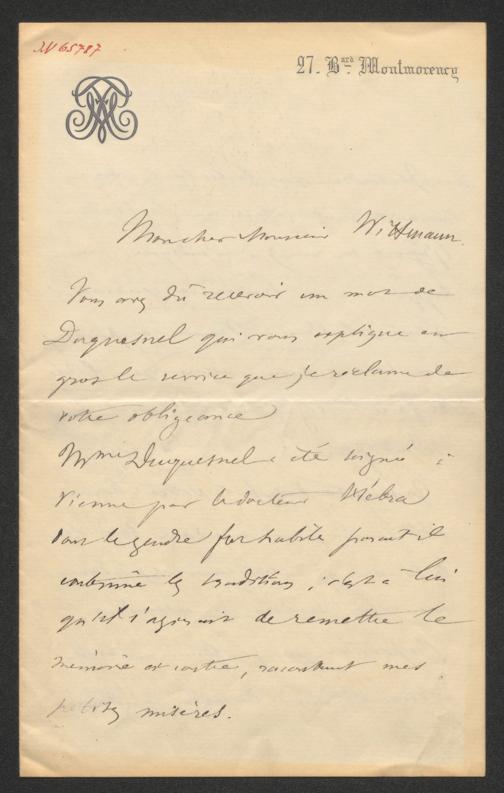 IN 65787
27. Bard Montmorency
Mon cher Monsieur Wittmann.
Vous avez dû recevoir un mot de
Duquesnel qui vous explique en
gros le service que je réclame de
votre obligeance
Mme Duquesnel a été soignée à
Vienne par le docteur Hébra
dont le gendre fort habile parait il
continue les traditions ; c'est à lui
qu'il s'agirait de remettre le
mémoire ci contre, racontant mes
petites misères.